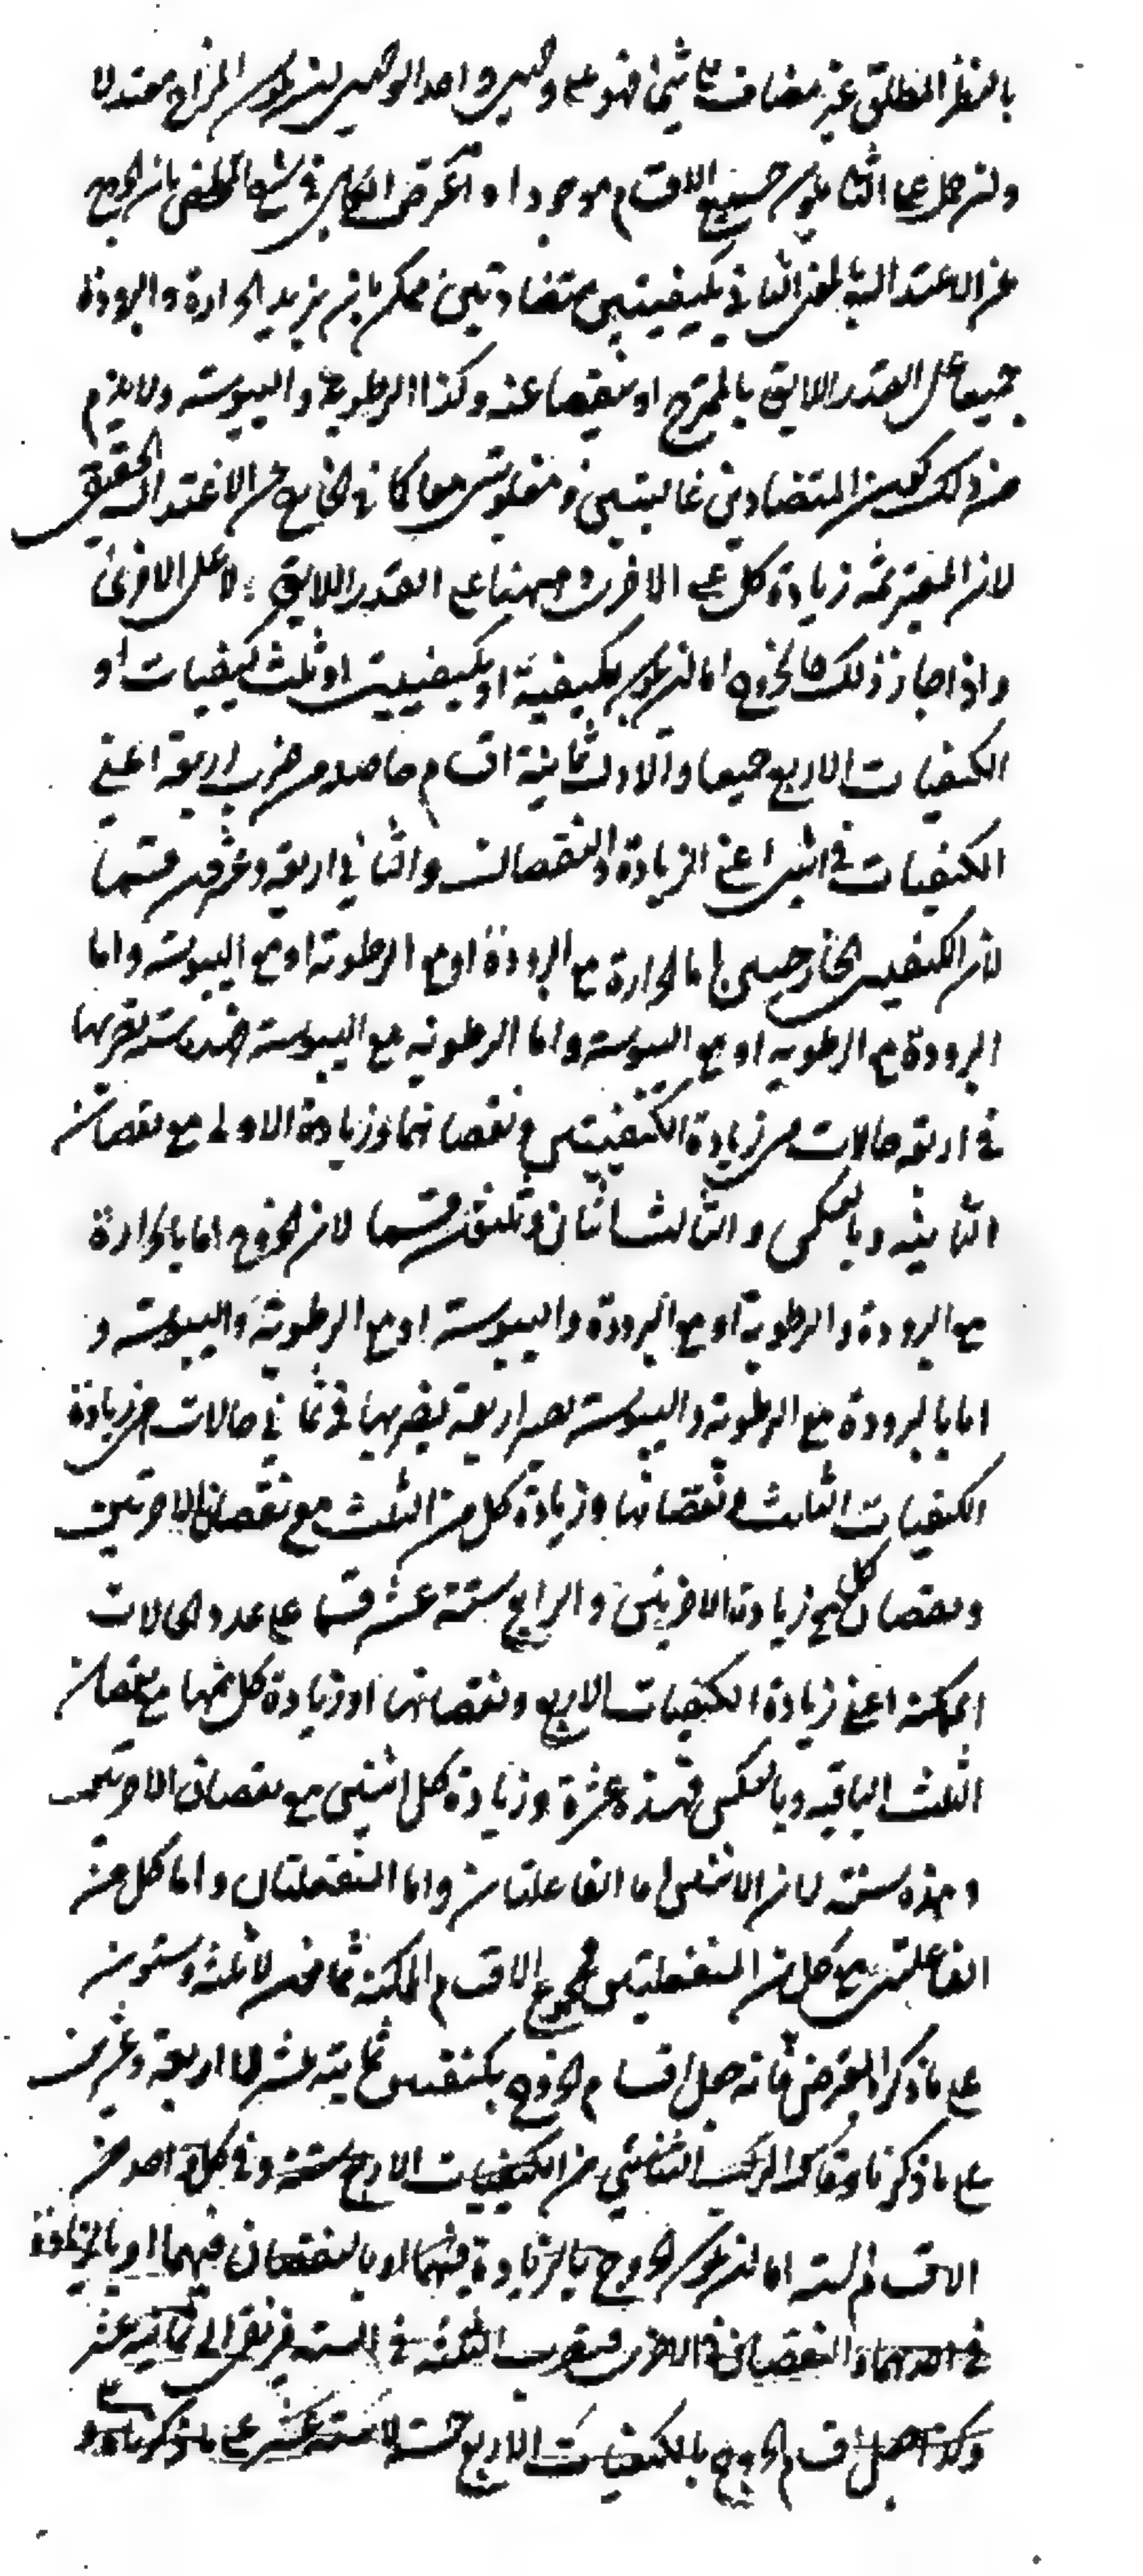 بالنظر المطلق غير مضاف الى شئ فهو على وجهين واحد الوجهين ان يكون المزاج معتدلا
وان حمل على الثانى يكون جميع الاقسام موجودا واعترض الكاتبى فى شرح الملخص بان الخروج
عن الاعتدال بالمعنى الثانى بكيفيتين متضادتين ممكن بان يزيد الحرارة والبرودة
جميعا على القدر اللايق بالممتزج او ينقصا عنه وكذا الرطوبة واليبوسة ولا يلزم
من ذلك كون المتضادين غالبتين ومغلوبتين معا كما فى الخارج عن الاعتدال الحقيقى
لان المعتبر ثمه زيادة كل على الاخرى وههنا على القدر اللايق لا على الاخرى
واذا جاز ذلك فالخروج اما ان يكون بكيفية او بكيفيتين او ثلث كيفيات او
الكيفيات الاربع جميعا والاول ثمانية اقسام حاصلة من ضرب اربعة اعنى
الكيفيات فى اثنين اعنى الزيادة والنقصان والثانى اربعة وعشرون قسما
لان الكيفيتين الخارجتين اما الحرارة مع البرودة او مع الرطوبة او مع اليبوسة واما
البرودة مع الرطوبة او مع اليبوسة واما الرطوبة مع اليبوسة فهذه ستة نضربها
فى اربعة حالات هى زيادة الكيفيتين ونقصانهما وزيادة الاولى مع نقصان
الثانية وبالعكس والثالث اثنان وثلثون قسما لان الخروج اما بالحرارة
مع البرودة والرطوبة او مع البرودة واليبوسة او مع الرطوبة واليبوسة و
اما بالبرودة مع الرطوبة واليبوسة يصير اربعة نضربها فى ثمانى حالات هى زيادة
الكيفيات الثلث ونقصانها وزيادة كل من الثلث مع نقصان الاخريين
ونقصان كل مع زيادة الاخريين والرابع ستة عشر قسما على عدد الحالات
الممكنة اعنى زيادة الكيفيات الاربع ونقصانها او زيادة كل منها مع نقصان
الثلث الباقية وبالعكس فهذه عشرة وزيادة كل اثنتين مع نقصان الاخريين
وهذه ستة لان الاثنتين اما الفاعلتان واما المنفعلتان واما كل من
الفاعلتين مع كل من المنفعلتين فمجموع الاقسام الممكنة ثمانون لا ثلثة وستون
على ما ذكر المعترض فانه جعل اقسام الخروج بكيفيتين ثمانية عشر لا اربعة وعشرين
على ما ذكرنا وقال التركيب الثنائى من الكيفيات الاربع ستة وفى كل واحد من
الاقسام الستة اما ان يكون الخروج بالزيادة فيهما او بالنقصان فيهما او بالزيادة
فى احدهما والنقصان فى الاخرى فيضرب الثلثة فى الستة فيرتقى الى ثمانية عشر
وكذا جعل اقسام الخروج بالكيفيات الاربع خمسة لا ستة عشر على ما ذكرناه و